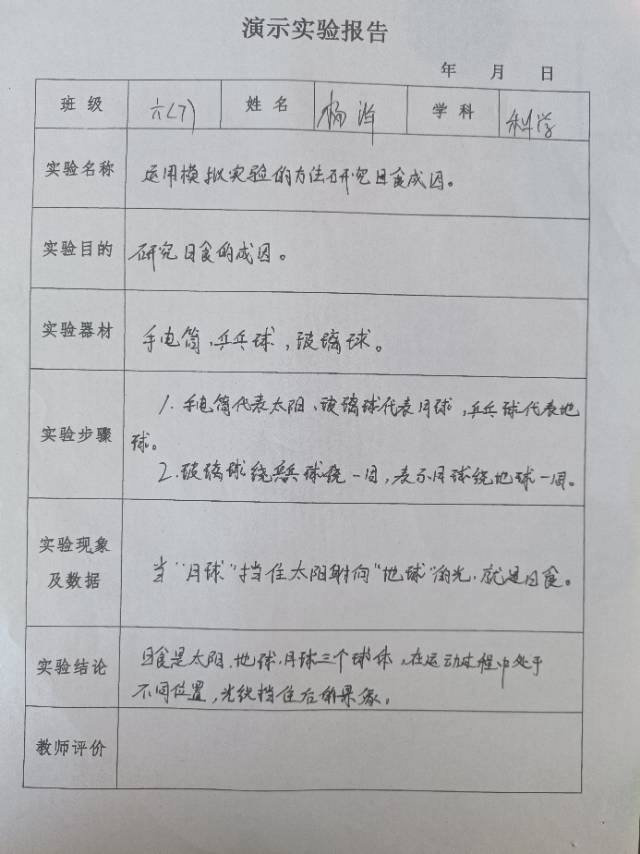 演示实验报告
年 月 日
班 级 六(7) 姓 名 杨 学 科 科学
实验名称 运用模拟实验的方法研究日食成因。
实验目的 研究日食的成因。
实验器材 手电筒,乒乓球,玻璃球。
1. 手电筒代表太阳、玻璃球代表月球,乒乓球代表地
实验步骤 球。
2. 玻璃球绕乒乓球绕一周,表示月球绕地球一周。
实验现象
及数据 当"月球"挡住太阳射向"地球"的光,就是日食。
实验结论 日食是太阳、地球、月球三个球体,在运动过程中处于
不同位置,光线挡住后的景象。
教师评价